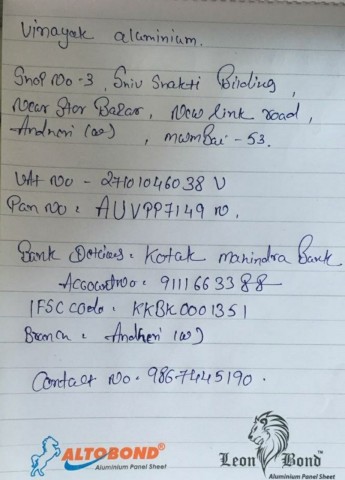 Vinayak aluminium.
Shop No-3, Shiv Shakti Bilding,
Near Star Bazar, New link road,
Andheri (w), mumbai-53.
VAt No - 27101046038 V
Pan No: AUVPP7149 N.
Bank Deteices: Kotak mahindra Bank
Account No: 9111663388
IFSC Code: KKBK0001351
Branch: Andheri (w)
Contact No. 9867445190.
ALTOBOND®
Aluminium Panel Sheet
Leon Bond™
Aluminium Panel Sheet